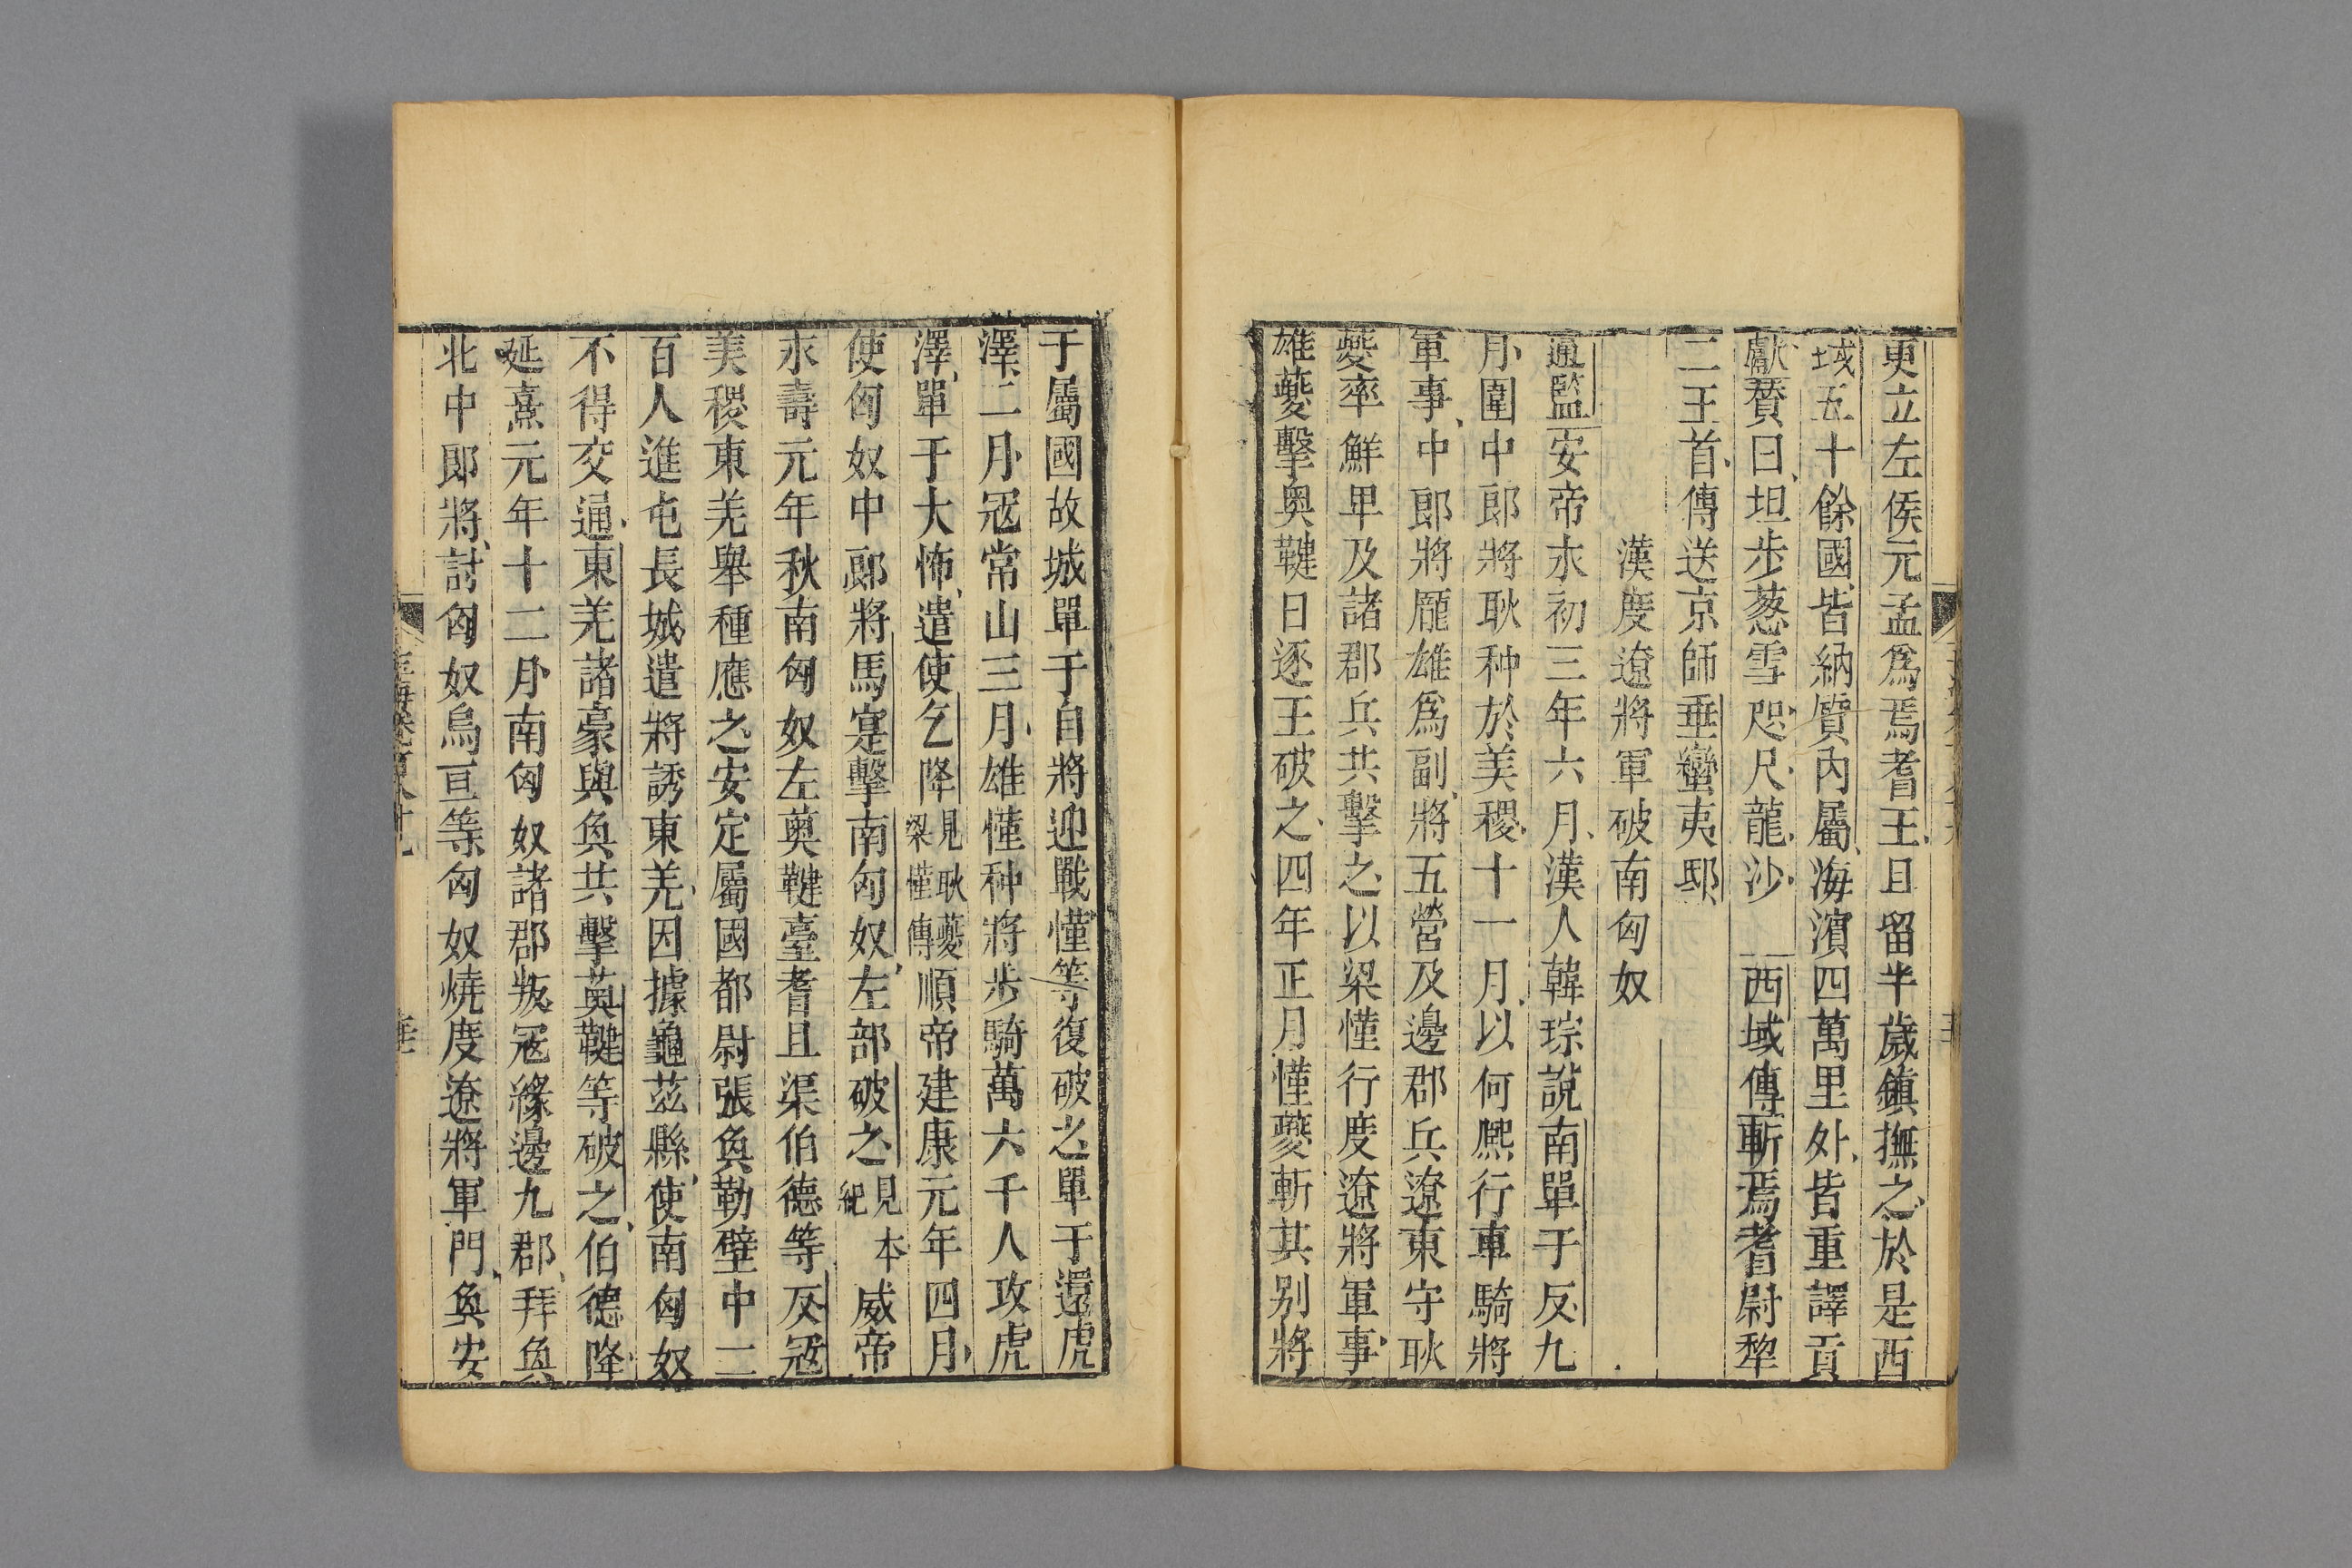 更立左侯元孟爲焉耆王且留半歲鎮撫之於是西
域五十餘國皆納質內屬海濱四萬里外皆重譯貢
獻贊曰坦步葱雪咫尺龍沙　西域傳斬焉耆尉犂
二王首傳送京師垂蠻夷邸
漢度遼將軍破南匈奴
通監安帝永初三年六月漢人韓琮說南單于反九
月圍中郎將耿种於美稷十一月以何熈行車騎將
軍事中郎將龐雄爲副將五營及邊郡兵遼東守耿
夔率鮮卑及諸郡兵共擊之以梁慬行度遼將軍事
雄夔擊奥鞬日逐王破之四年正月慬夔斬其别將
于屬國故城單于自將迎戰慬等復破之單于還虎
澤二月冦常山三月雄慬种將步騎萬六千人攻虎
澤單于大怖遣使乞降見耿夔梁慬傳順帝建康元年四月
使匈奴中郎將馬寔擊南匈奴左部破之見本紀威帝
永壽元年秋南匈奴左薁鞬臺耆且渠伯德等反冦
美稷東羌舉種應之安定屬國都尉張奐勒壁中二
百人進屯長城遣將誘東羌因據龜茲縣使南匈奴
不得交通東羌諸豪與奐共擊薁鞬等破之伯德降
延熹元年十二月南匈奴諸郡叛冦緣邊九郡拜奐
北中郎將討匈奴烏亘等匈奴燒度遼將軍門奐安